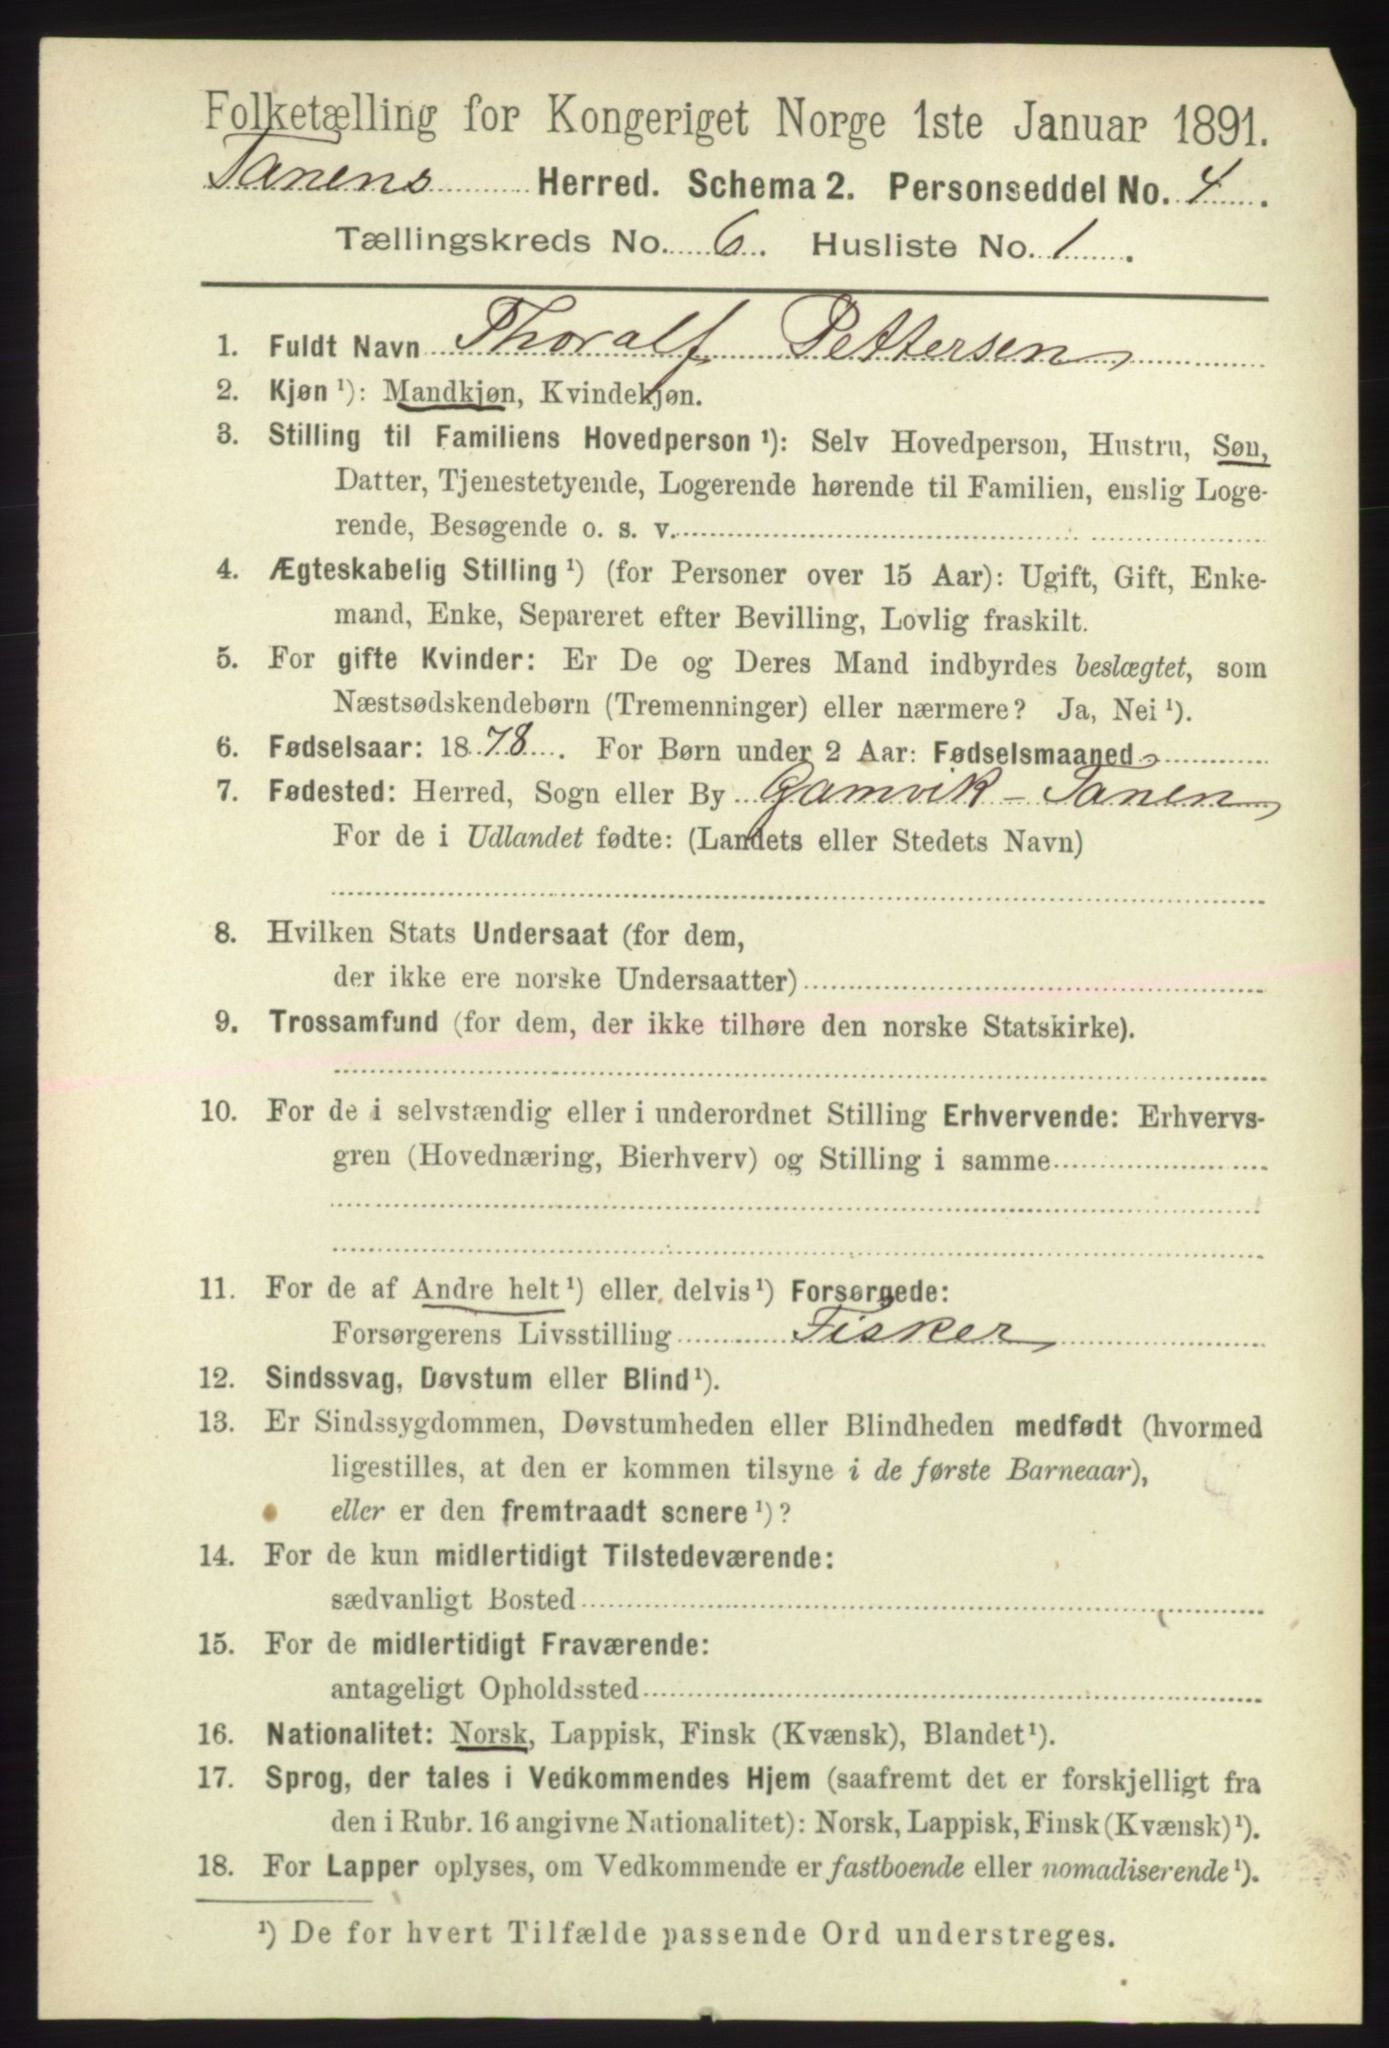 Folketælling for Kongeriget Norge 1ste Januar 1891.
Tanens Herred. Schema 2. Personseddel No. 4.
Tællingskreds No. 6. Husliste No. 1.
1. Fuldt Navn Thoralf Pettersen
2. Kjøn ¹): Mandkjøn, Kvindekjøn.
3. Stilling til Familiens Hovedperson ¹): Selv Hovedperson, Hustru, Søn,
Datter, Tjenestetyende, Logerende hørende til Familien, enslig Loge-
rende, Besøgende o. s. v.
4. Ægteskabelig Stilling ¹) (for Personer over 15 Aar): Ugift, Gift, Enke-
mand, Enke, Separeret efter Bevilling, Lovlig fraskilt.
5. For gifte Kvinder: Er De og Deres Mand indbyrdes beslægtet, som
Næstsødskendebørn (Tremenninger) eller nærmere? Ja, Nei ¹).
6. Fødselsaar: 1878. For Børn under 2 Aar: Fødselsmaaned
7. Fødested: Herred, Sogn eller By Gamvik - Tanen
For de i Udlandet fødte: (Landets eller Stedets Navn)
8. Hvilken Stats Undersaat (for dem,
der ikke ere norske Undersaatter)
9. Trossamfund (for dem, der ikke tilhøre den norske Statskirke).
10. For de i selvstændig eller i underordnet Stilling Erhvervende: Erhvervs-
gren (Hovednæring, Bierhverv) og Stilling i samme
11. For de af Andre helt ¹) eller delvis ¹) Forsørgede:
Forsørgerens Livsstilling Fisker
12. Sindssvag, Døvstum eller Blind ¹).
13. Er Sindssygdommen, Døvstumheden eller Blindheden medfødt (hvormed
ligestilles, at den er kommen tilsyne i de første Barneaar),
eller er den fremtraadt senere ¹)?
14. For de kun midlertidigt Tilstedeværende:
sædvanligt Bosted
15. For de midlertidigt Fraværende:
antageligt Opholdssted
16. Nationalitet: Norsk, Lappisk, Finsk (Kvænsk), Blandet ¹).
17. Sprog, der tales i Vedkommendes Hjem (saafremt det er forskjelligt fra
den i Rubr. 16 angivne Nationalitet): Norsk, Lappisk, Finsk (Kvænsk) ¹).
18. For Lapper oplyses, om Vedkommende er fastboende eller nomadiserende ¹).
¹) De for hvert Tilfælde passende Ord understreges.